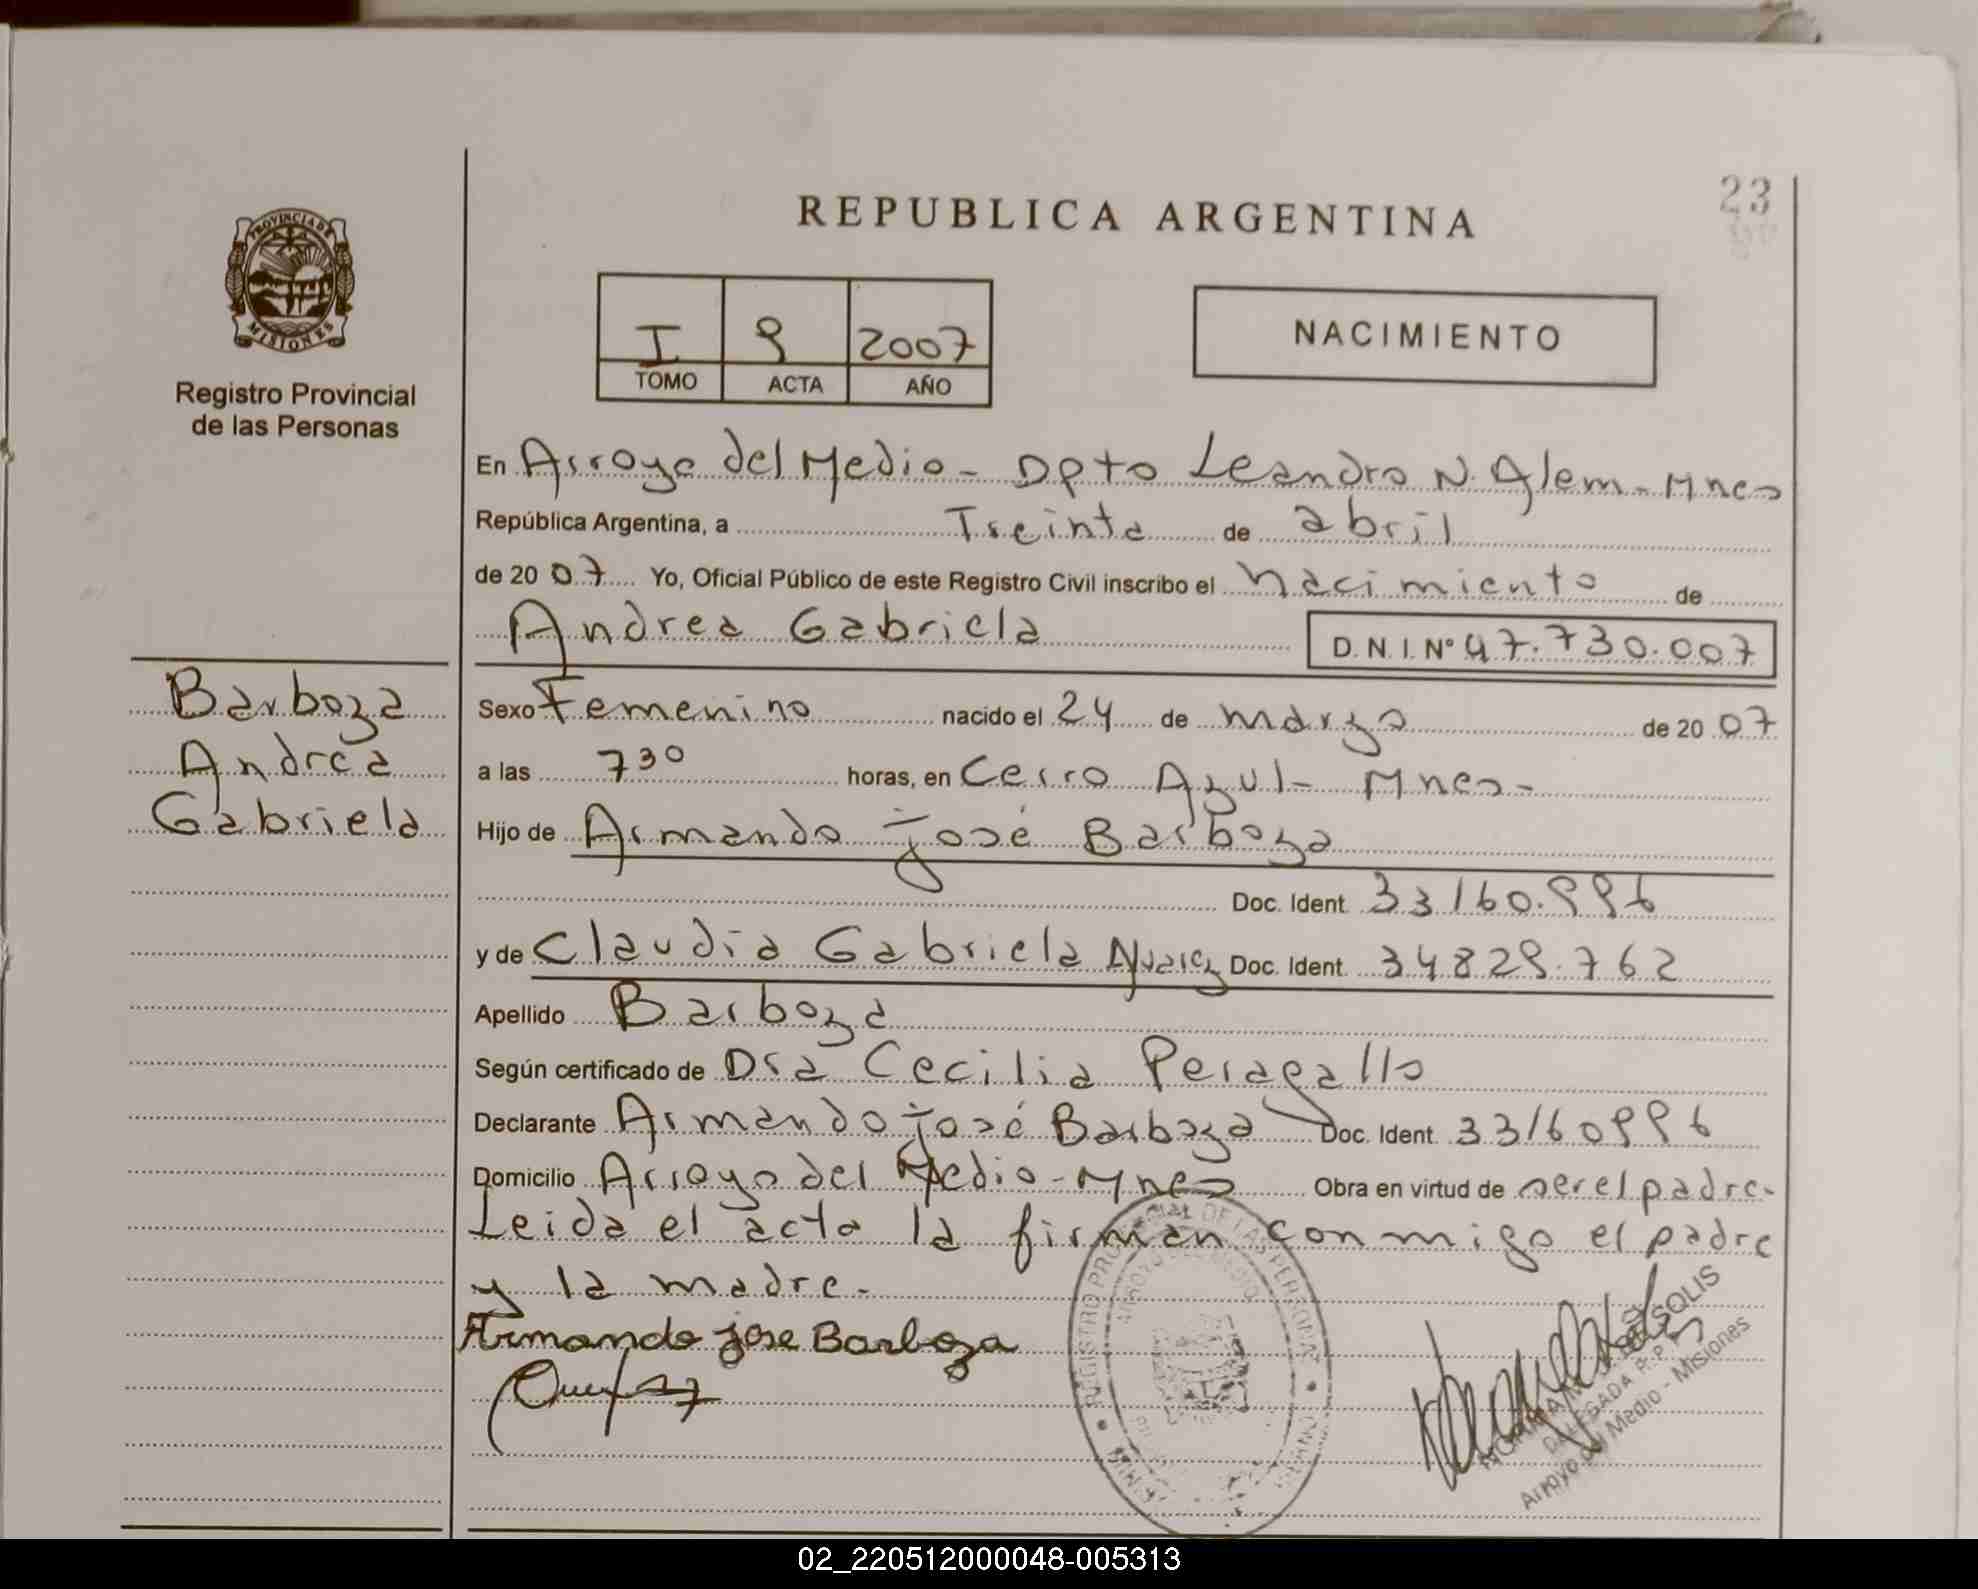 REPUBLICA ARGENTINA
23
PROVINCIA DE
MISIONES
Registro Provincial
de las Personas
I 9 2007
TOMO ACTA AÑO
NACIMIENTO
En Arroyo del Medio - Dpto Leandro N. Alem - Mnes
República Argentina, a Treinta de abril
de 20 07 Yo, Oficial Público de este Registro Civil inscribo el nacimiento de
Andrea Gabriela D.N.I. Nº 47.730.007
Barboza
Andrea
Gabriela
Sexo Femenino nacido el 24 de marzo de 20 07
a las 7 30 horas, en Cerro Azul - Mnes -
Hijo de Armando José Barboza
Doc. Ident. 33160.996
y de Claudia Gabriela Doc. Ident. 34829.762
Apellido Barboza
Según certificado de Dra Cecilia Peragallo
Declarante Armando José Barboza Doc. Ident. 33160996
Domicilio Arroyo del Medio - Mnes Obra en virtud de ser el padre.
Leida el acta la firman conmigo el padre
y la madre.-
Armando jose Barboza
REGISTRO PROVINCIAL DE LAS PERSONAS
SOLIS
DELEGADA R.P.P.
Arroyo del Medio - Misiones
02_220512000048-005313